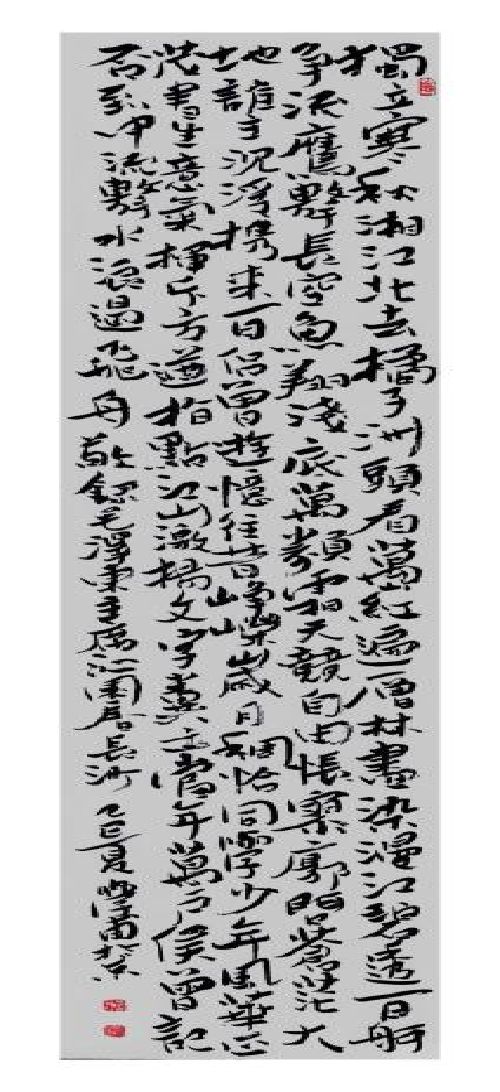 獨立寒秋湘江北去橘子洲頭看萬紅遍層林盡染漫江碧透百舸
爭流鷹擊長空魚翔淺底萬類霜天競自由悵寥廓問蒼茫大
地誰主沉浮攜來百侶曾遊憶往昔崢嶸歲月稠恰同學少年風華正
茂書生意氣揮斥方遒指點江山激揚文字糞土當年萬戶侯曾記
否到中流擊水浪遏飛舟敬錄毛澤東主席沁園春長沙乙巳夏於京